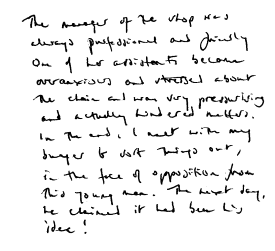 The manager of the shop was
always professional and friendly
One of her assistants became
overanxious and stressed about
the claim and was very pressurising
and actually hindered matters.
In the end, I went with my
to sort things out,
in the face of opposition from
this young man. The next day,
he claimed it had been his
idea!